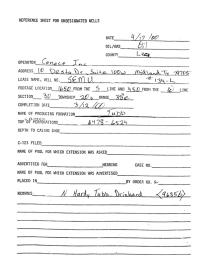 REFERENCE SHEET FOR UNDESIGNATED WELLS
DATE 4/17/00
OIL/GAS Oil
COUNTY Lea
OPERATOR Conoco Inc
ADDRESS 10 Desta Dr, Suite 100W Midland Tx 79705
LEASE NAME, WELL NO. SEMU #134-L
FOOTAGE LOCATION 660 FROM THE S LINE AND 450 FROM THE LINE
SECTION 30 TOWNSHIP 20s RANGE 38e
COMPLETION DATE 3/12/00
NAME OF PRODUCING FORMATION Tubb
TOP OF PERFORATIONS 6478-6524
DEPTH TO CASING SHOE
C-123 FILED
NAME OF POOL FOR WHICH EXTENSION WAS ASKED
ADVERTISED FOR HEARING CASE NO.
NAME OF POOL FOR WHICH EXTENSION WAS ADVERTISED
PLACED IN BY ORDER NO. R-
REMARKS N Hardy Tubb Drinkard <96356>